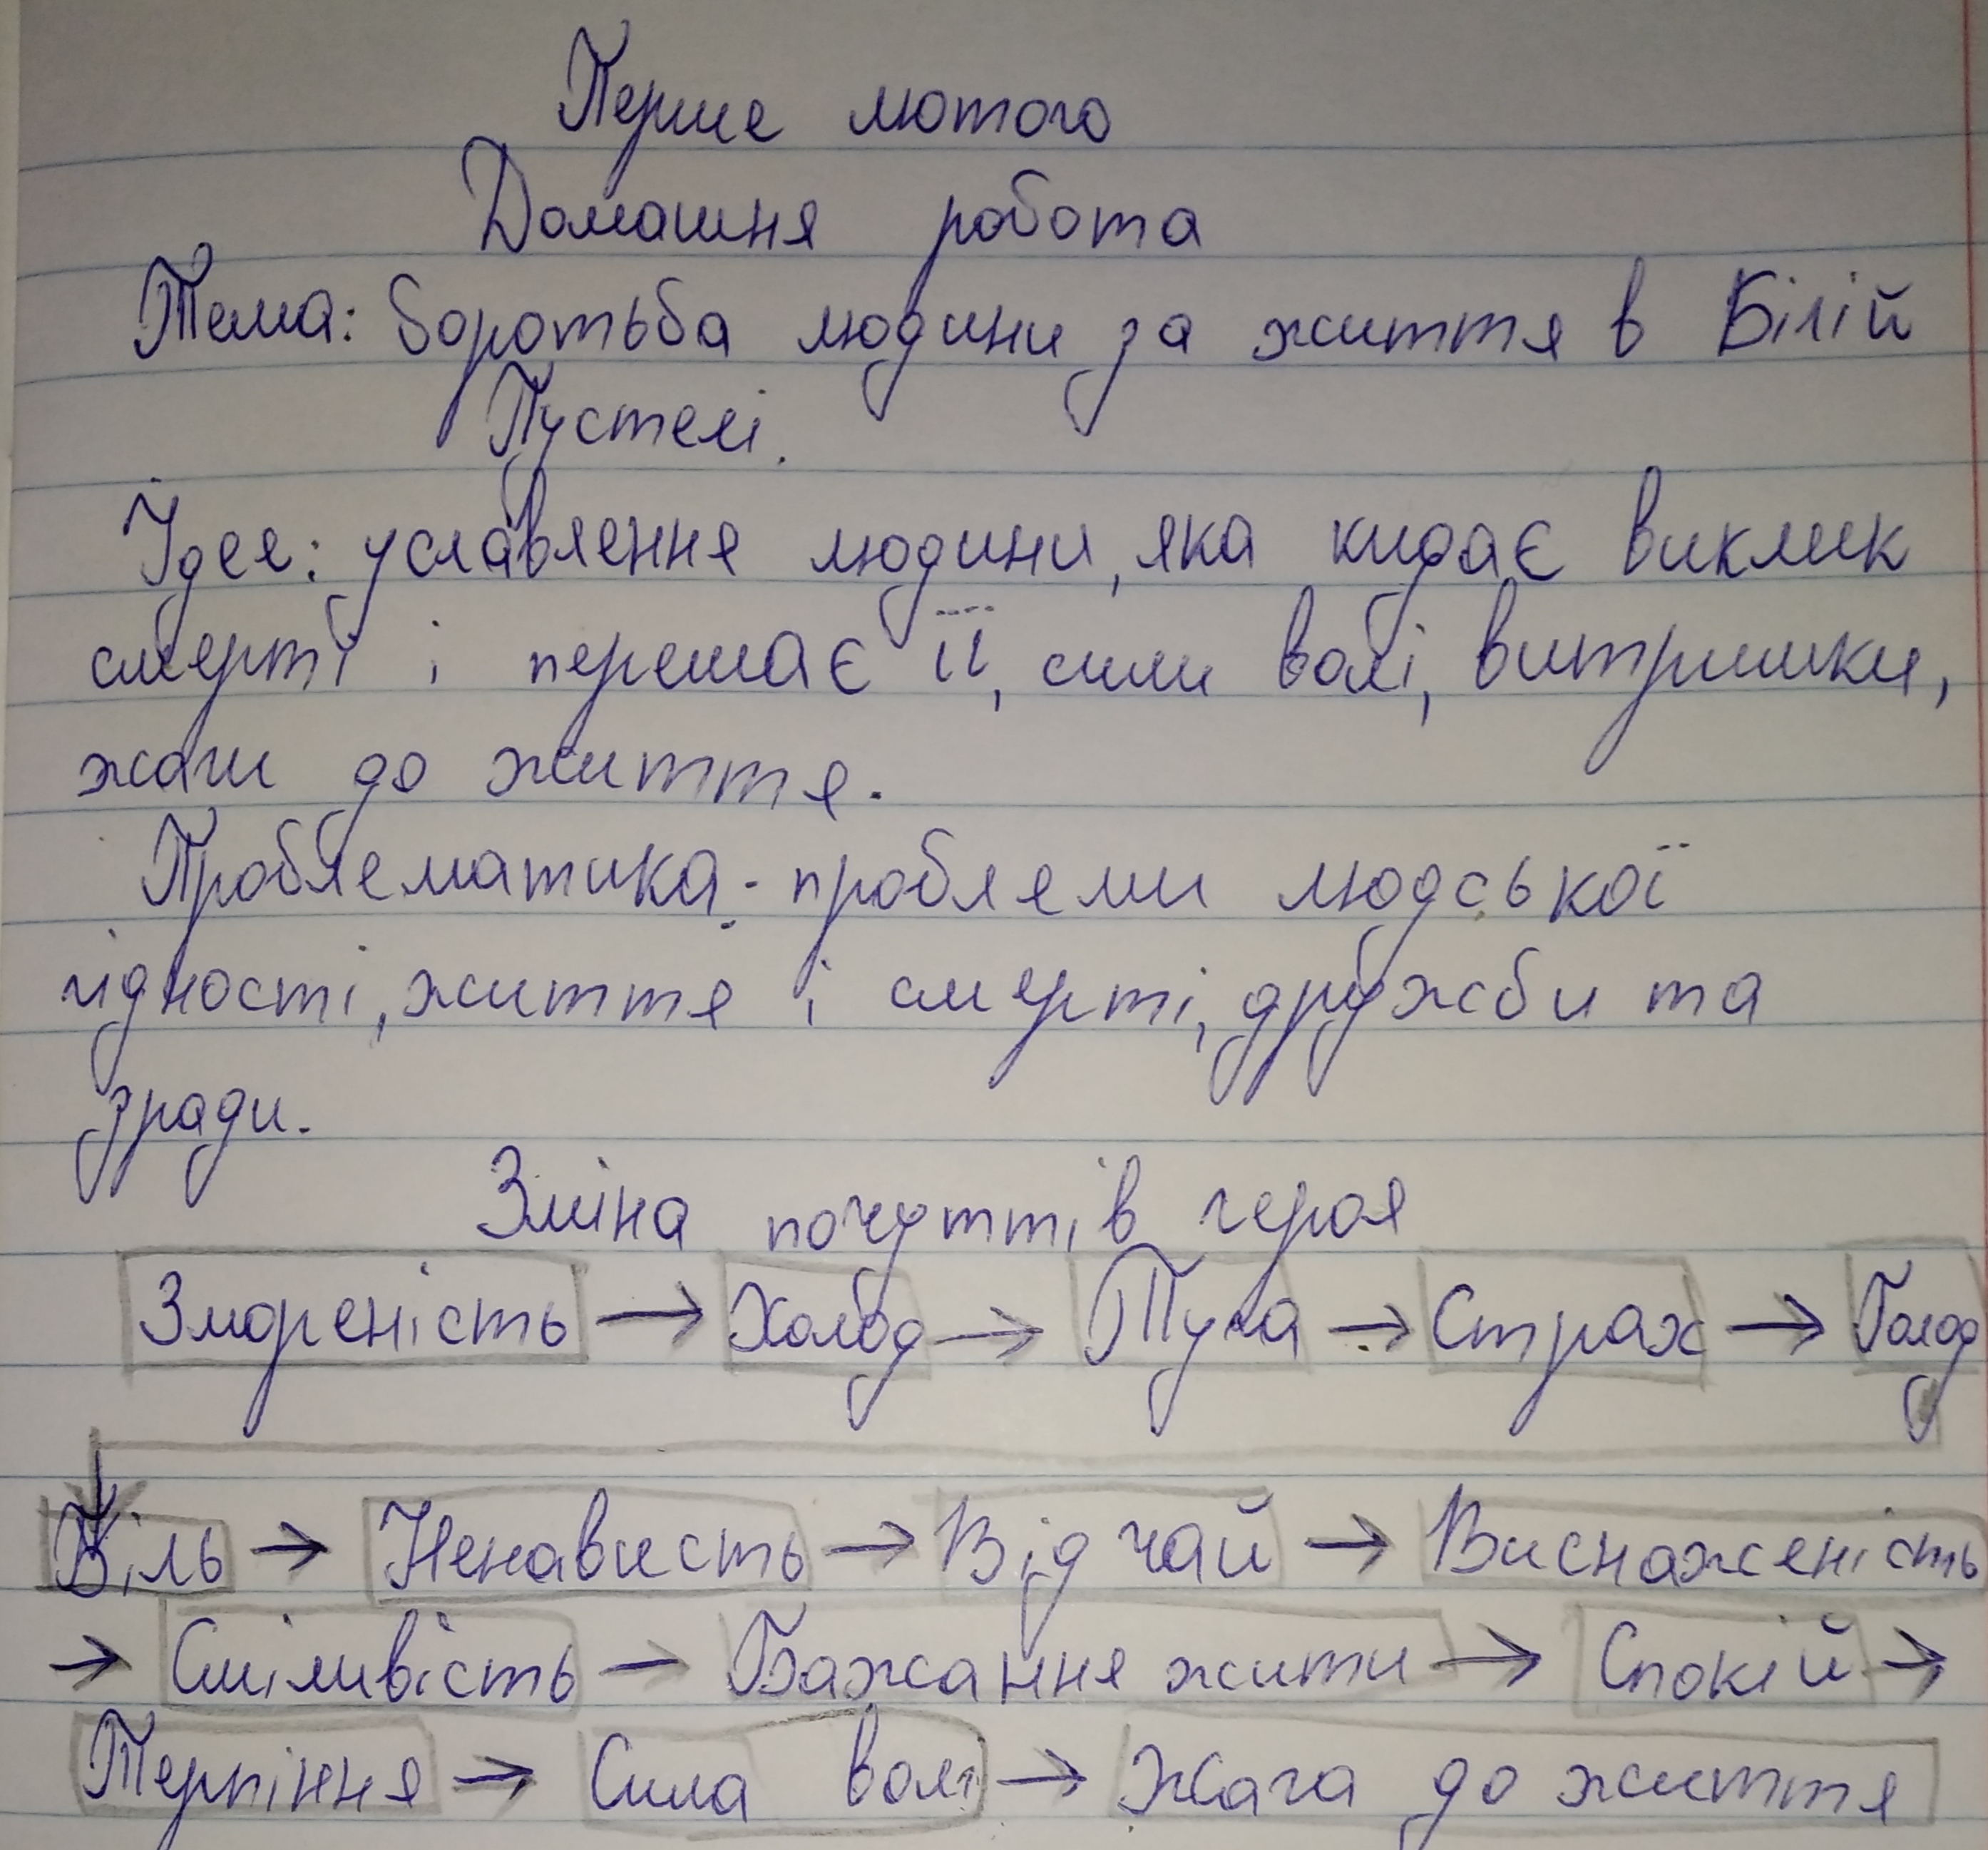 Перше лютого
Домашня робота
Тема: боротьба людини за життя в Білій
Пустелі.
Ідея: уславлення людини, яка кидає виклик
смерті і перемагає її, сили волі, витримки,
жаги до життя.
Проблематика: проблеми людської
гідності, життя і смерті, дружби та
зради.
Зміна почуттів героя
Змореність → Холод → Туга → Страх → Голод
Біль → Ненависть → Відчай → Виснаженість
→ Сміливість → Бажання жити → Спокій →
Терпіння → Сила волі → Жага до життя